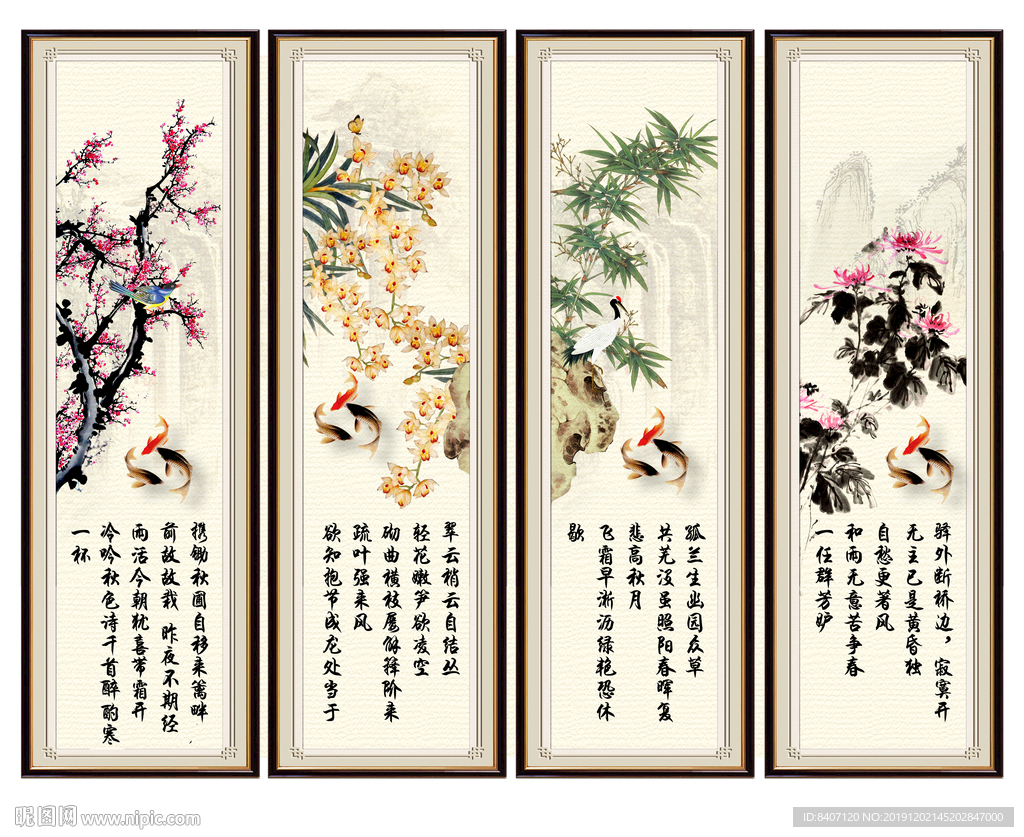 携锄秋圃自移来篱畔
前故故栽 昨夜不期经
雨活今朝犹喜带霜开
冷吟秋色诗千首醉酌寒
一杯
翠云梢云自结丛
轻花嫩笋欲凌空
砌曲横枝屡解箨阶来
疏叶强来风
欲知抱节成龙处当于
孤兰生幽园众草
共芜没虽照阳春晖复
悲高秋月
飞霜早淅沥绿艳恐休
歇
驿外断桥边，寂寞开
无主已是黄昏独
自愁更著风
和雨无意苦争春
一任群芳妒
昵图网 www.nipic.com
ID:8407120 NO:20191202145202847000